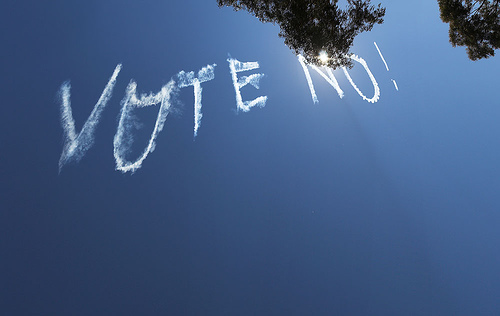 VOTE NO!